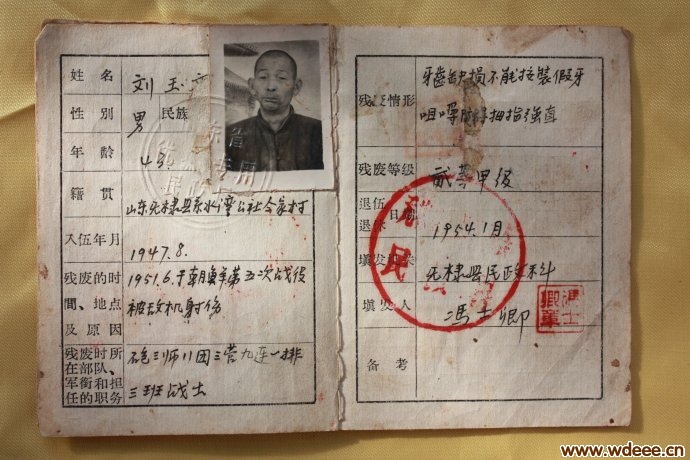 姓名
刘玉
性别
男
民族
年龄
43
籍贯
山东无棣县 水湾公社 家村
入伍年月
1947.8.
残废的时
間、地点
及原因
1951.6.于朝鲜第五次战役
被敌机射伤
残废时所
在部队、
军衔和担
任的职务
砲三师 团三营九连一排
三班战士
省
专用
残废情形
牙齒缺损不能 装假牙
咀嚼 拇指强直
残废等级
贰等甲级
退伍
退休
日期
1954.1月
填发
无棣县民政科
民
填发人
冯士卿
冯士
卿章
备考
www.wdeee.cn